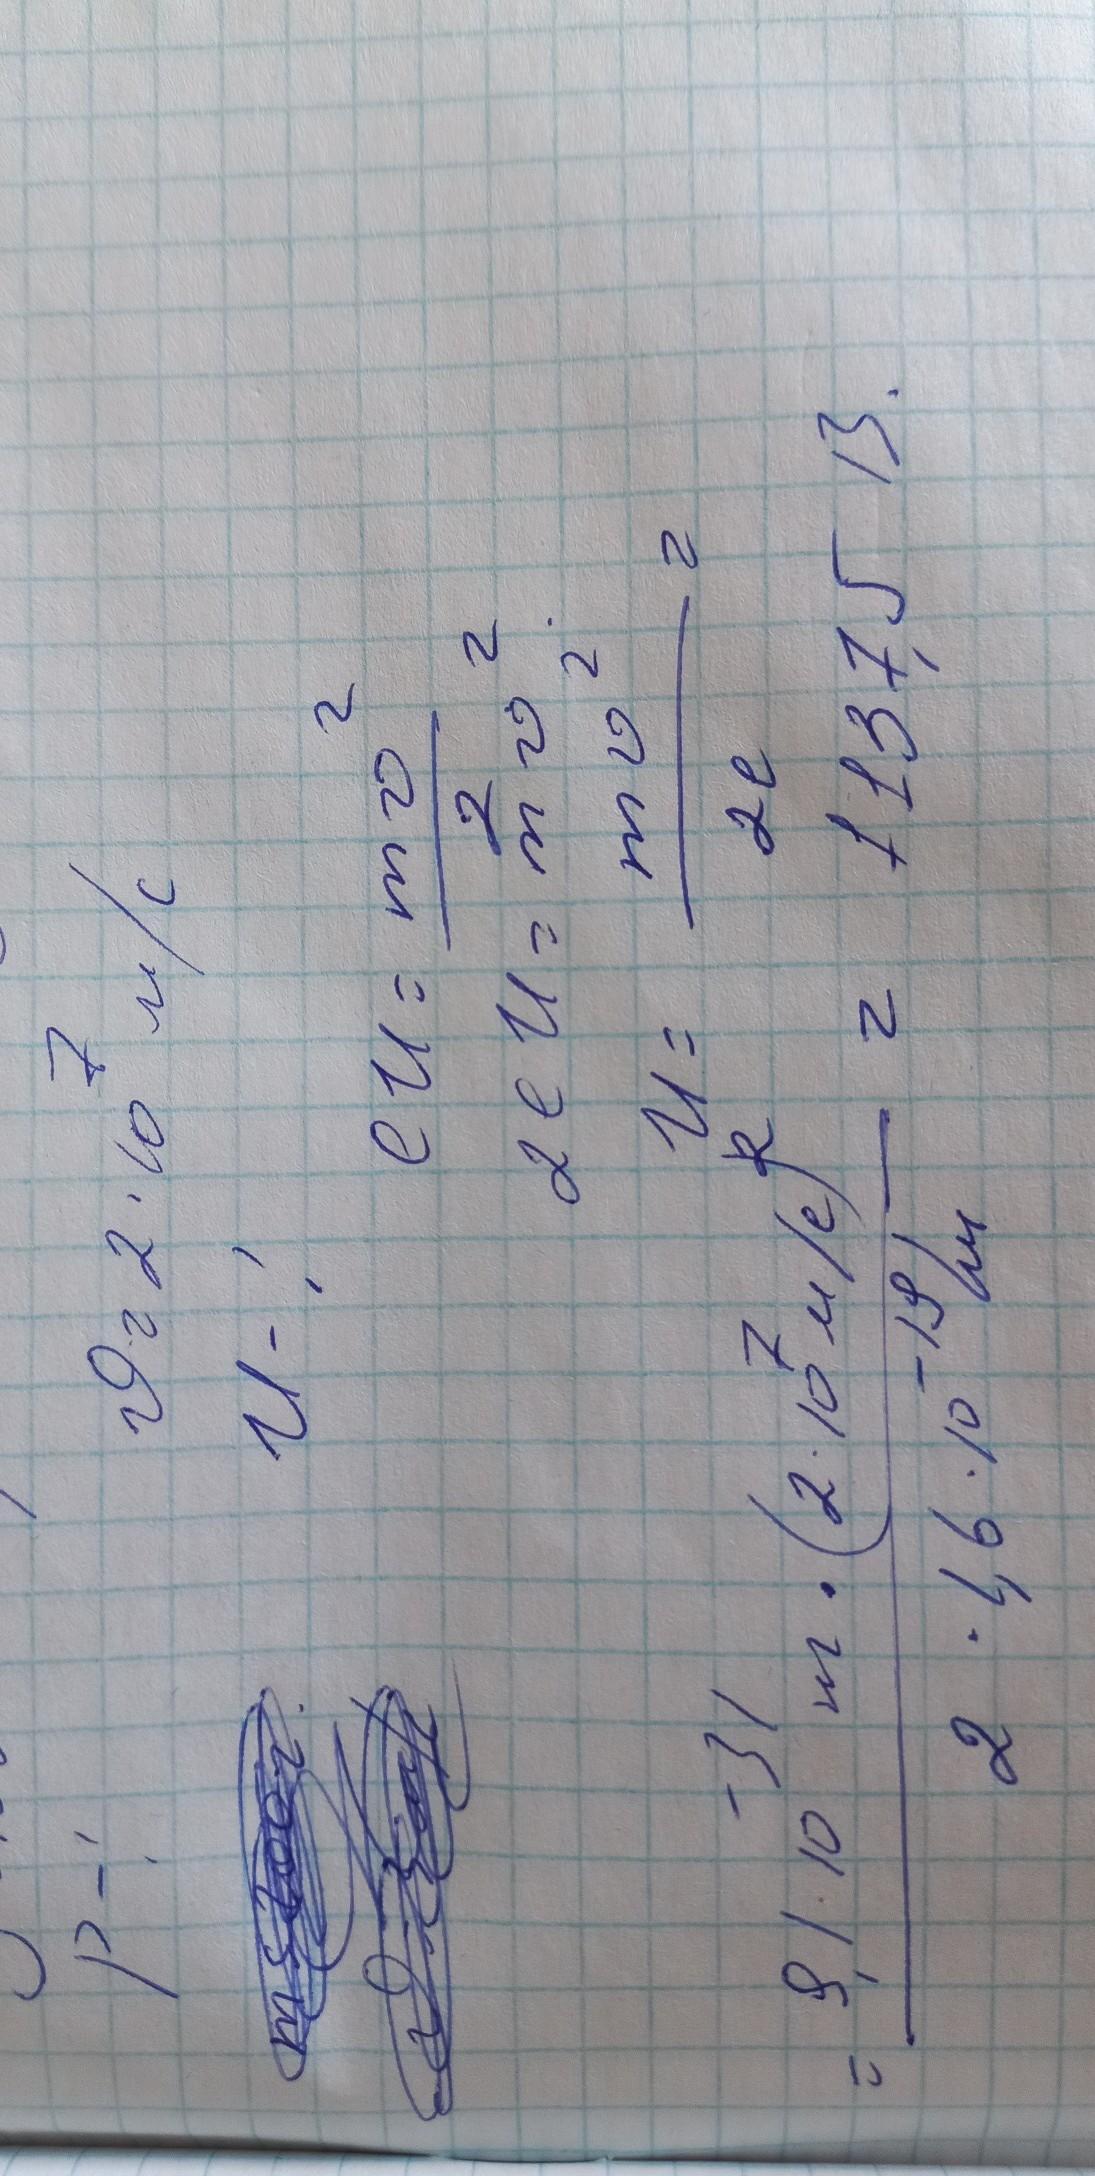 p - ?
υ = 2 · 10⁷ м/с
U - ?
eU = mυ² / 2
2eU = mυ².
U = mυ² / 2e
= 9,1 · 10⁻³¹ · (2 · 10⁷ м/с)² / 2 · 1,6 · 10⁻¹⁹ = 1137,5 В.